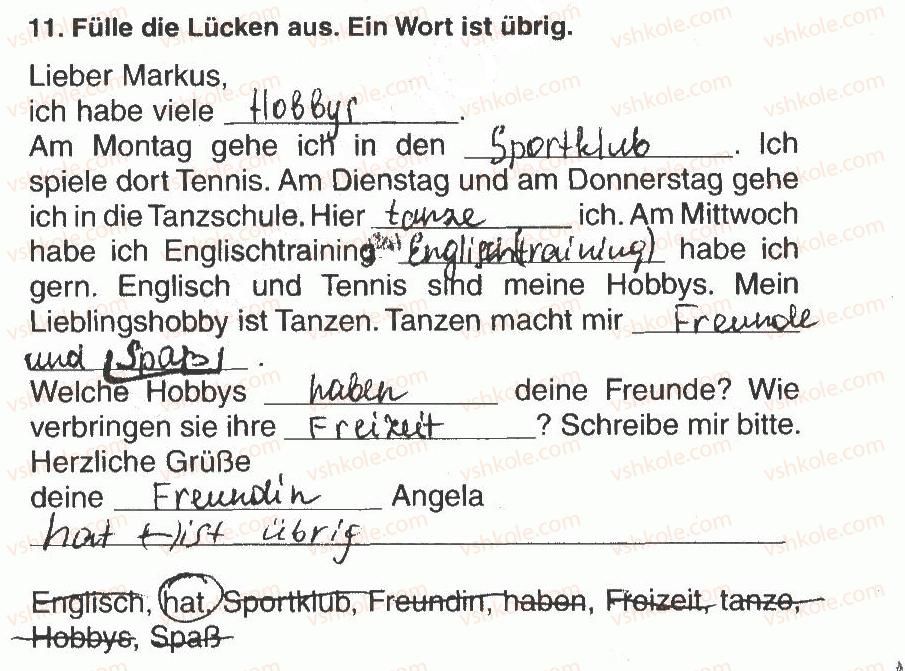 11. Fülle die Lücken aus. Ein Wort ist übrig.
Lieber Markus,
ich habe viele Hobbys.
Am Montag gehe ich in den Sportklub. Ich
spiele dort Tennis. Am Dienstag und am Donnerstag gehe
ich in die Tanzschule. Hier tanze ich. Am Mittwoch
habe ich Englischtraining. Englisch(training) habe ich
gern. Englisch und Tennis sind meine Hobbys. Mein
Lieblingshobby ist Tanzen. Tanzen macht mir Freunde
und (Spaß).
Welche Hobbys haben deine Freunde? Wie
verbringen sie ihre Freizeit? Schreibe mir bitte.
Herzliche Grüße
deine Freundin Angela
hat (-) ist übrig
Englisch, hat, Sportklub, Freundin, haben, Freizeit, tanze,
Hobbys, Spaß
vshkole.com